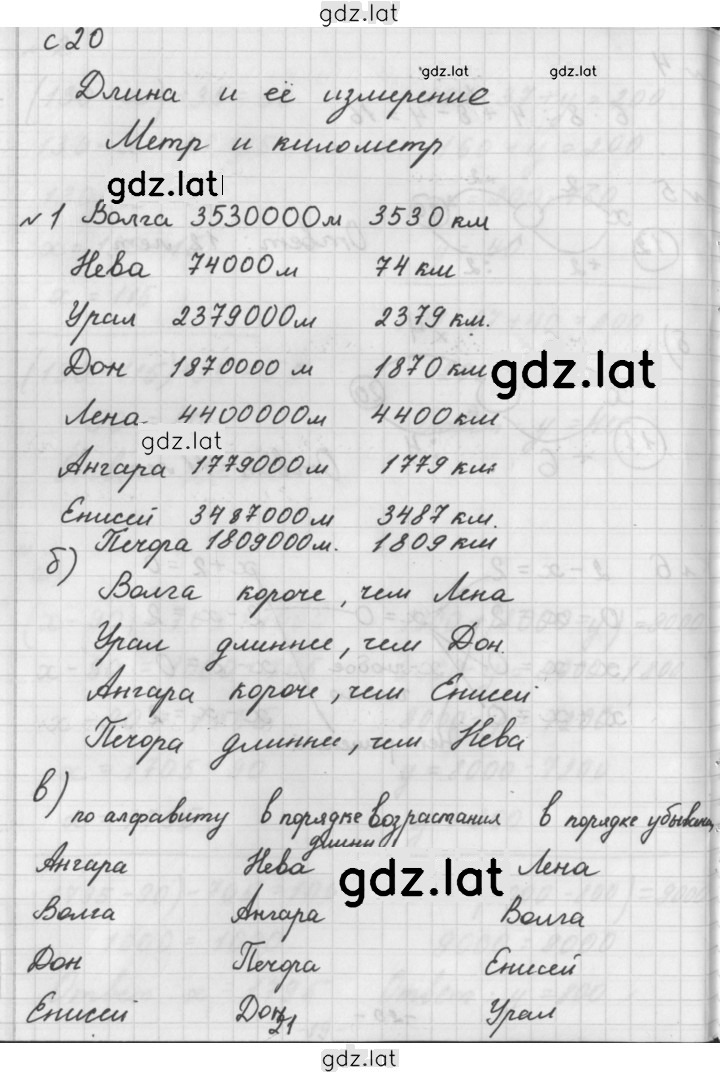 gdz.lat
с 20
gdz.lat gdz.lat
Длина и её измерение
Метр и километр
gdz.lat
№1 Волга 3530000м 3530 км
Нева 74000м 74 км
Урал 2379000м 2379 км.
Дон 1870000 м 1870 км
gdz.lat
Лена 4400000м 4400 км
gdz.lat
Ангара 1779000м 1779 км.
Енисей 3487000м 3487 км.
Печора 1809000м. 1809 км
б)
Волга короче, чем Лена
Урал длиннее, чем Дон.
Ангара короче, чем Енисей
Печора длиннее, чем Нева
в)
по алфавиту в порядке возрастания в порядке убывани
длины
Ангара Нева Лена
gdz.lat
Волга Ангара Волга
Дон Печора Енисей
Енисей Дон Урал
21
gdz.lat